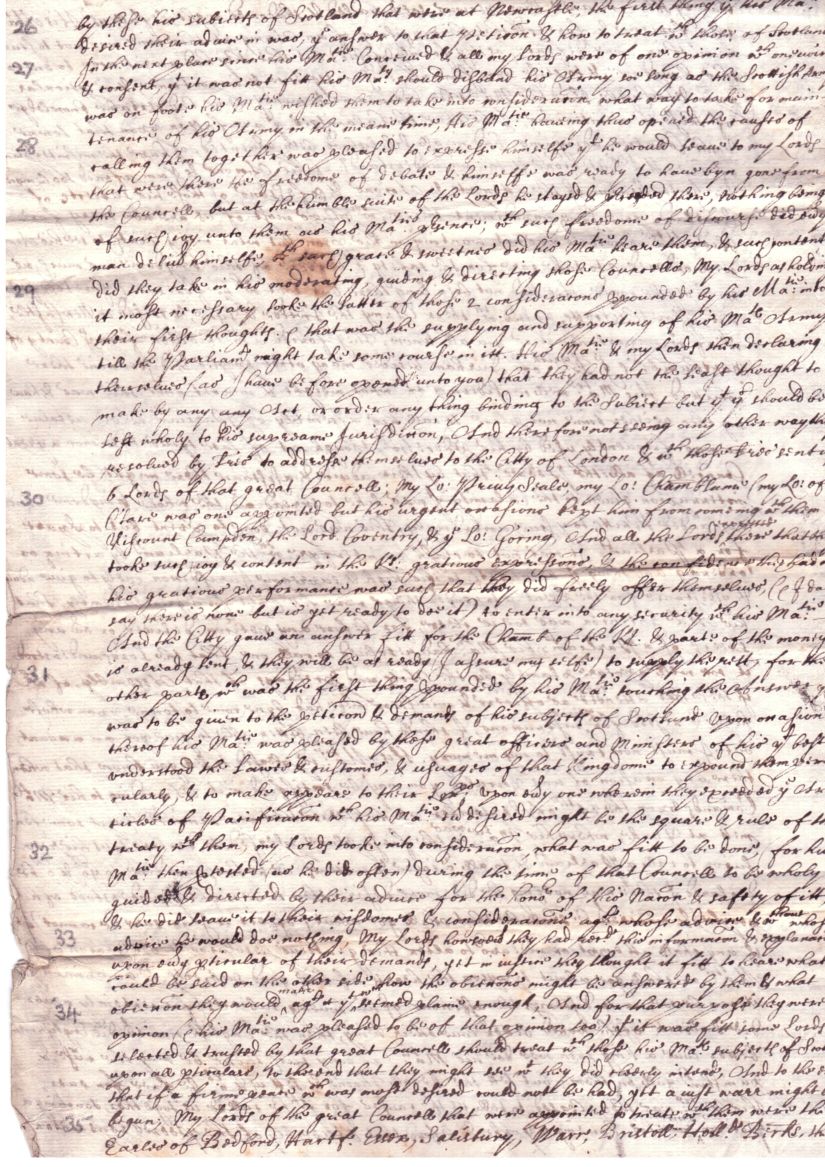 by those his subiects of Scotland that were at Newcastle the first thing yt his Ma:tie
26 desired their advice in was, ye answer to that petiton: & how to treat wth those of Scotland
27 In the next place since his Ma:tie Conceived & all my Lords were of one opinion wth one voice
& consent, yt it was not fitt his Ma:ty should disband his Army soe long as the Scottish Army
was on foote his Ma:tie wished them to take into consideracon, what way to take for main-
tenance of his Army in the meane time, His Ma:tie having thus opened the causes of
28 calling them together was pleased to expresse himselfe yt he would leave to my Lords
that were there the freedome of debate & himselfe was ready to have byn gone from
the Councell, but at the humble suite of the Lords he stayd & there, nothing being
of such joy unto them as his Ma:ties psence; wth such freedome of discourse did evy
man deliv himselfe, wth such grace & sweetnes did his Ma:tie heare them, & such content
did they take in his moderating, guiding & directing those Councells, My Lords as holding
29 it most necessary tooke the latter of those 2 consideracons ppounded by his Ma:tie into
their first thoughts: (that was the supplying and supporting of his Ma:ts Army
till the Parliamt might take some course in itt. His Ma:tie & my Lords then declaring
themselves (as I have before opened unto you) that they had not the least thought to
make by any any Act, or order any thing binding to the Subiect but yt yt should be
left wholy to his supreame Jurisdicon, And therefore not seeing any other way they
resolved by Lres to address themselves to the Citty of London & wth those Lres sent
30 6 Lords of that great Councell; My Lo: Privy Seale, my Lo: Chamblaine (my Lo: of
Clare was one appointed but his urgent occasions kept him from coming wth them
Viscount Campden, the Lord Coventry, & ye Lo: Goring, And all the Lords there that
tooke such joy & content in the K: gratious expressions & the confidence they had
his gratious performance was such that they did freely offer themselves, (& I dare
say there is none but is yet ready to doe it) to enter into any security wth his Ma:tie
And the Citty gave an answer fitt for the Chamb of the K: & parte of the money
31 is already lent, & they will be as ready (I assure my selfe) to supply the rest; for the
other parte wch was the first thing ppounded by his Ma:tie touching the Answer yt
was to be given to the peticon & demands of his subiects of Scotland upon occasion
thereof his Ma:tie was pleased by those great officers and Ministers of his yt best
understood the Lawes & customes, & usuages of that Kingdome to expound them
cularly, & to make appeare to their Lopps upon evy one wherein they exceeded ye Ar-
ticles of Pacificacon wch his Ma:tie desired might be the square & rule of the
treaty wth them, my Lords tooke into consideracon, what was fitt to be done, for his
32 Ma:tie then ptested (as he did often) during the time of that Councell to be wholy
guided & directed by their advice for the honor of this Nacon & safety of itt
& he did leave it to their wisdomes & consideracons agt whose advice & wthout whose
33 advice he would doe nothing, My Lords howsoevr they had herd this informacon & explanacon
upon evy pticular of their demands, yet in iustice they thought it fitt to heare what
could be said on the other side how the obiecons might be answered by them & what
34 obiecon they would make agt yt wch seemed plaine enough, And for that purpose they were
opinion (& his Ma:tie was pleased to be of that opinion too) yt it was fitt some Lords
selected & trusted by that great Councell should treat wth those his Ma:ts subiects of Scot
upon all pticulars, to thend that they might see wt they did clerely intend, And to the
that if a firme peace wch was most desired could not be had, yet a iust warr might
35 begun; My Lords of the great Councell that were appointed to treate wth them were the
Earles of Bedford, Hartf: Essex, Salisbury, Warr: Bristoll, Holld: Berks, th